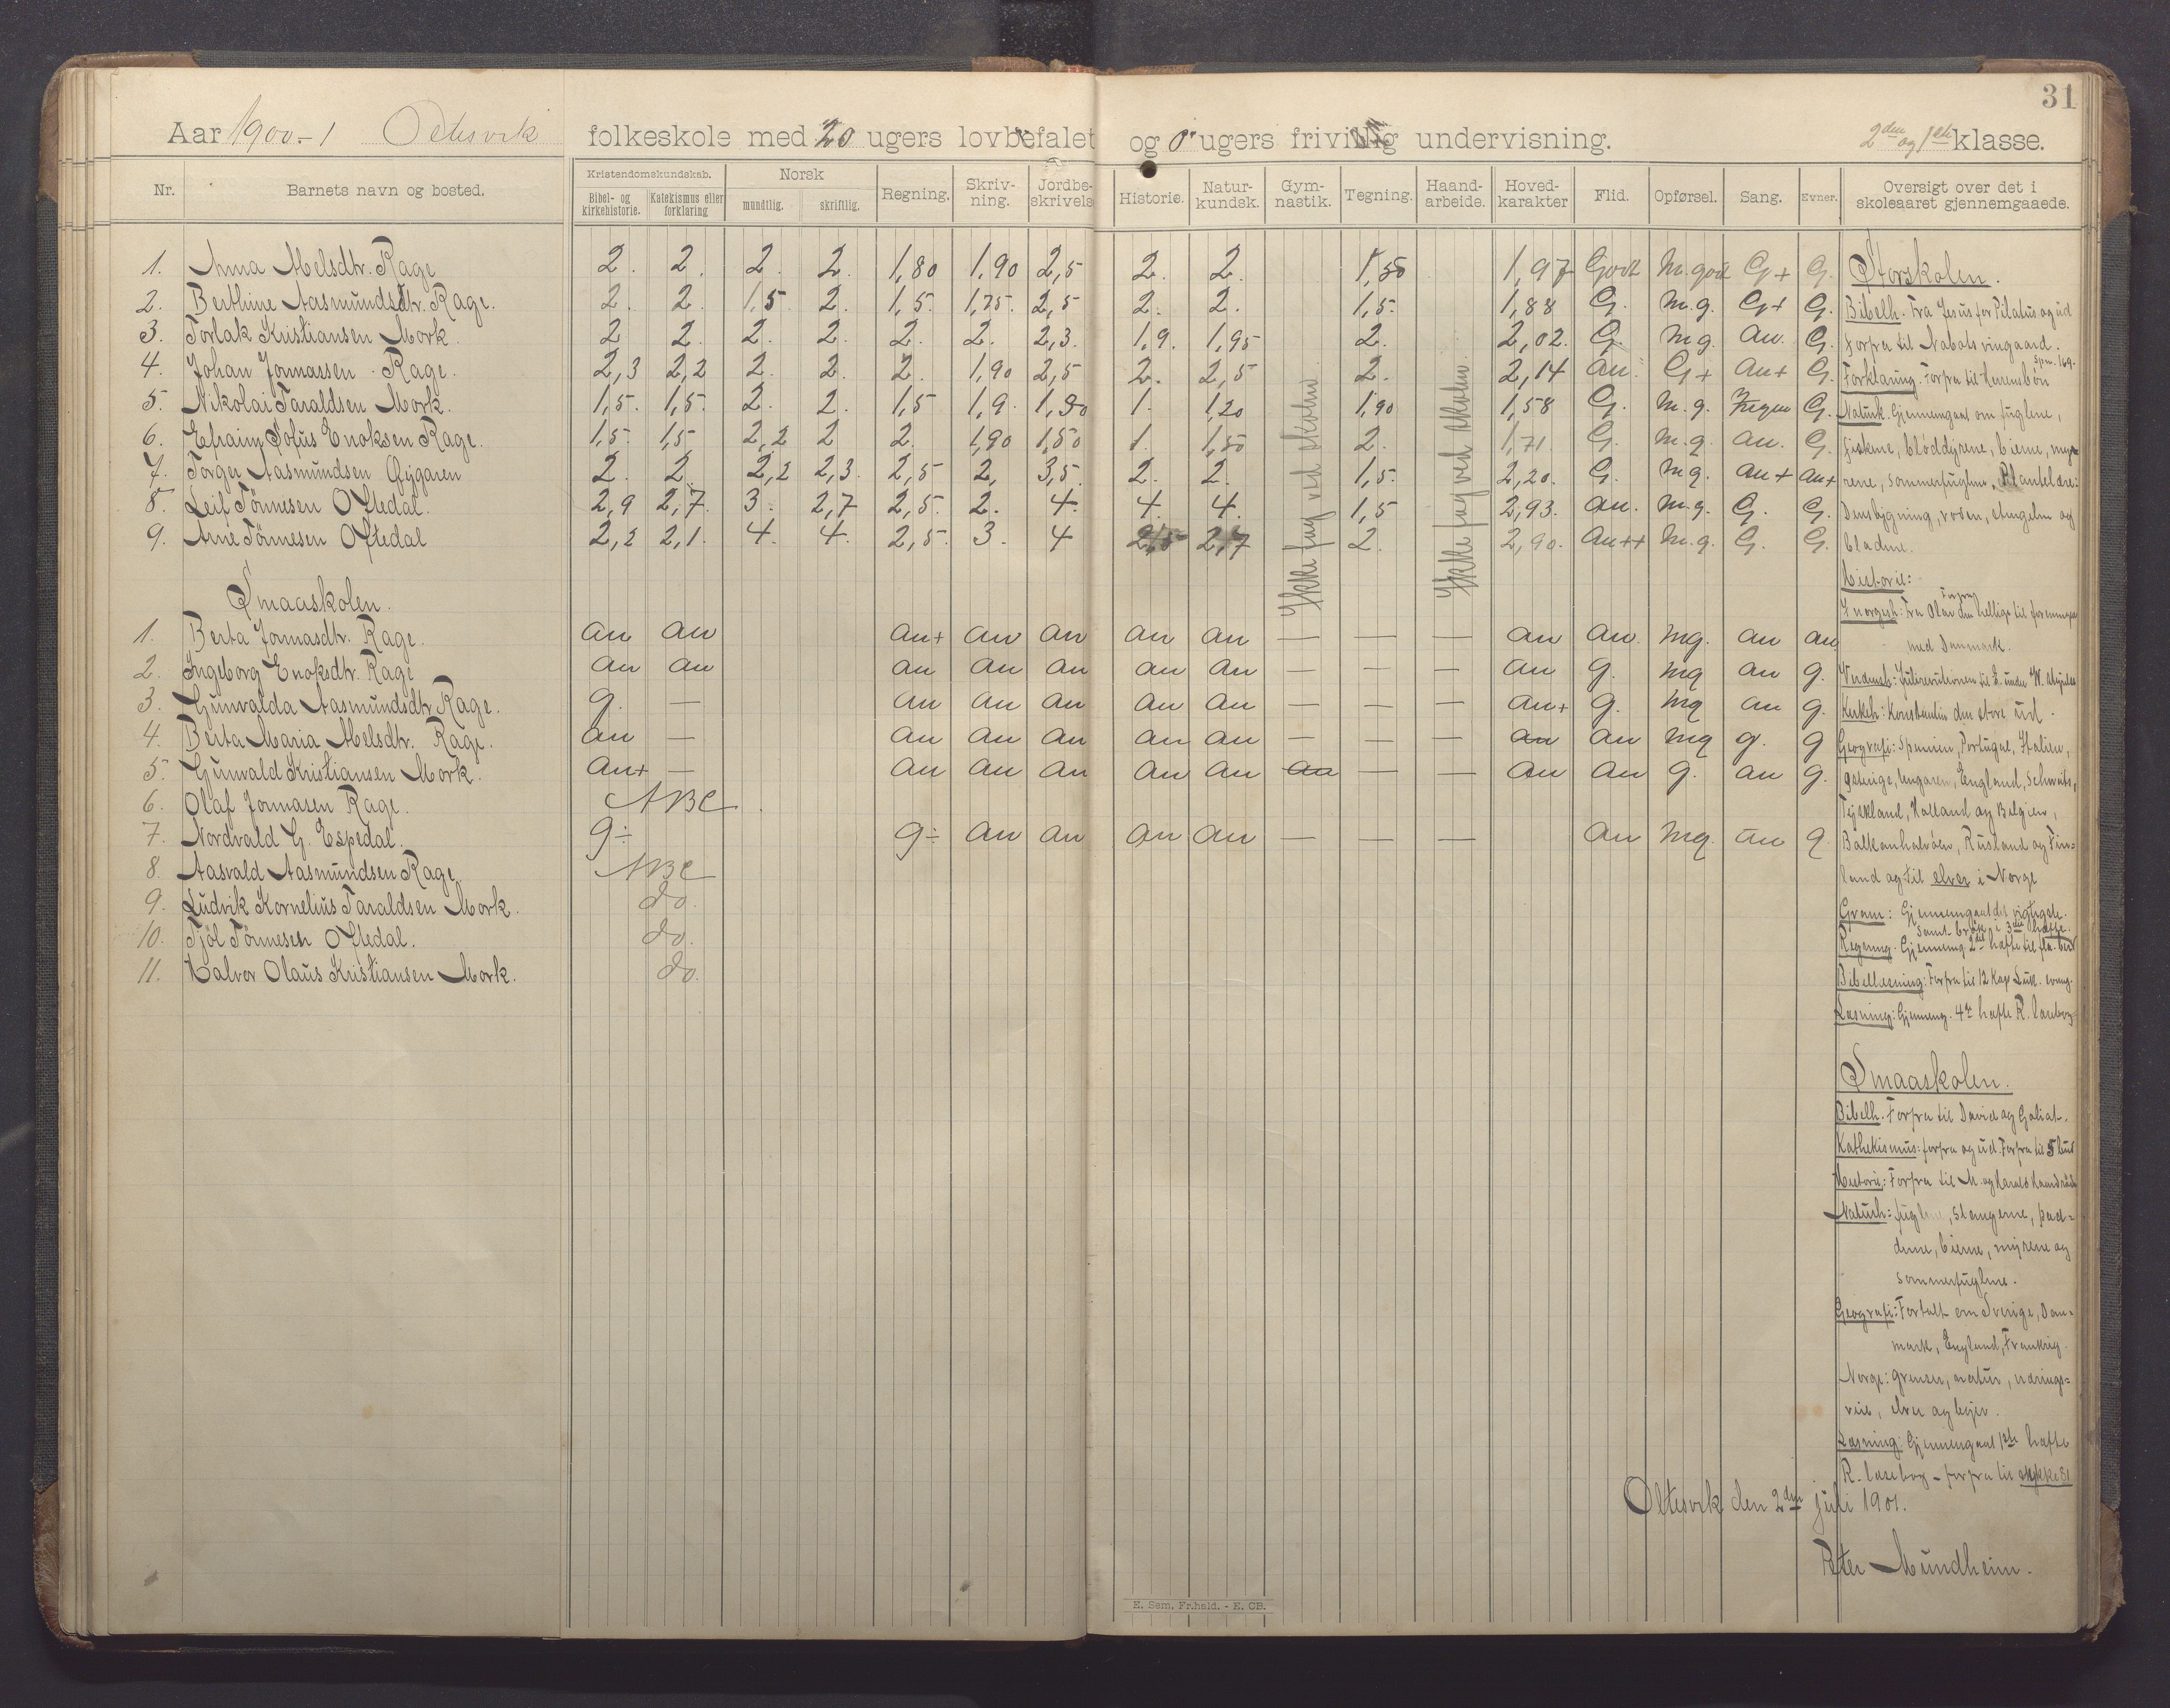 31
Aar 1900-1 Oltesvik folkeskole med 20 ugers lovbefalet og 0 ugers frivillig undervisning. 2den og 1ste klasse.
Nr. Barnets navn og bosted. Kristendomskundskab. Bibel- og kirkehistorie. Katekismus eller forklaring Norsk mundtlig. skriftlig. Regning. Skriv-ning. Jordbe-skrivels Historie. Natur-kundsk. Gym-nastik. Tegning. Haand-arbeide. Hoved-karakter Flid. Opførsel. Sang. Evner. Oversigt over det i skoleaaret gjennemgaaede.
1. Anna Melsdtr. Rage 2. 2. 2. 2. 1,80 1,90 2,5 2. 2. 1,50 1,97 Godt M.godt G+ G.
2. Berthine Aasmundsdtr. Rage. 2. 2. 1,5 2. 1,5. 1,75. 2,5 2. 2. 1,5. 1,88 G. m.g. G+ G.
3. Torlak Kristiansen Mork. 2 2. 2. 2. 2. 2. 2,3. 1,9. 1,95 2. 2,02. G. m.g. an. G.
4. Johan Jonnassen Rage. 2,3 2,2 2. 2. 2. 1,90 2,5 2. 2,5 2. 2,14 an. G+ an+ G.
5. Nikolai Taraldsen Mork. 1,5. 1,5. 2. 2. 1,5 1,9. 1,80 1. 1,20 1,90 1,58 G. m.g. Ingen G.
6. Efraim Sofus Enoksen Rage. 1,5. 1,5 2,2 2 2. 1,90 1,50 1. 1,50 2. 1,71 G. m.g. an. G.
7. Torger Aasmundsen Gygaren 2. 2. 2,2 2,3. 2,5 2, 3,5. 2. 2. 1,5. 2,20. G. m.g. an+ an+
8. Leif Tönnesen Oftedal. 2,9 2,7. 3. 2,7 2,5. 2. 4. 4. 4. 1,5 2,93. an. m.g. G. G.
9. Arne Tönnesen Oftedal 2,2 2,1. 4. 4. 2,5. 3. 4 2,5 2,7 2. 2,90. an++ m.g. G. G.
Ikke fag ved skolen
Ikke fag ved skolen
Smaaskolen.
1. Berta Jonnasdtr. Rage. an an an+ an an an an — — — an an. mg. an an
2. Ingeborg Enoksdtr. Rage an an an an an an an — — — an g. mg an g.
3. Gunvalda Aasmundsdtr Rage. g. — an an an an an — — — an+ g. mg an g.
4. Berta Maria Melsdtr. Rage. an — an an an an an — — — an an mg g. g
5. Gunvald Kristiansen Mork. an+ — an an an an an an — — an an g. an g.
6. Olaf Jonnasen Rage. ABC
7. Nordvald G. Espedal. g÷ g÷ an an an an — — — an mg. an g.
8. Aasvald Aasmundsen Rage. ABC
9. Ludvik Kornelius Taraldsen Mork. do.
10. Tjöl Tönnesen Oftedal. do.
11. Halvor Olaus Kristiansen Mork. do.
Storskolen.
Bibelh. Fra Jesus for Pilatus og ud
forfra til Nabots vingaard.
Forklaring. Forfra til Herrens bøn spm. 169.
Naturk. Gjennemgaat om fuglene,
fiskene, bløddyrene, bierne, myr-
rene, sommerfuglene, Plantelære:
Densbygning, roden, stengelen og
bladene.
Historie:
Norgesh: Fra Olav den hellige til foreningen
med Danmark.
Verdensh: Julirevolutionen til E. under
Kirkeh: Konstantin den store ud.
Geografi: Spanien, Portugal, Italien,
østrige, Ungaren, England, Schweits,
Tyskland, Holland og Belgien,
Balkanhalvöen, Rusland og Fin-
land og til elver i Norge
Gram: Gjennemgaat det vigtigste.
samt brøk i 3die hæfte.
Regning. Gjennemg. 2det hæfte til
Bibellæsning: Forfra til 12 Kap Luk. evang.
Læsning: Gjennemg. 4de hæfte R. læsebog
Smaaskolen.
Bibelh. Forfra til David og Goliat.
Kathekismus: forfra og ud. Forfra til 5 bud
Historie: Forfra til M. og Harald Haardraade
Naturh: fuglene, slangerne, pad-
derne, bierne, myrene og
sommerfuglene.
Geografi: Fortalt om Sverige, Dan-
mark, England, Frankrig.
Norge: grenser, natur, nærings-
veie, elver og byer.
Læsning: Gjennemgaat 1ste hæfte
R. læsebog - forfra til stykke 81
Oltesvik den 2den juli 1901.
Peter Mundheim.
E. Sem, Fr.hald. - E. CB.